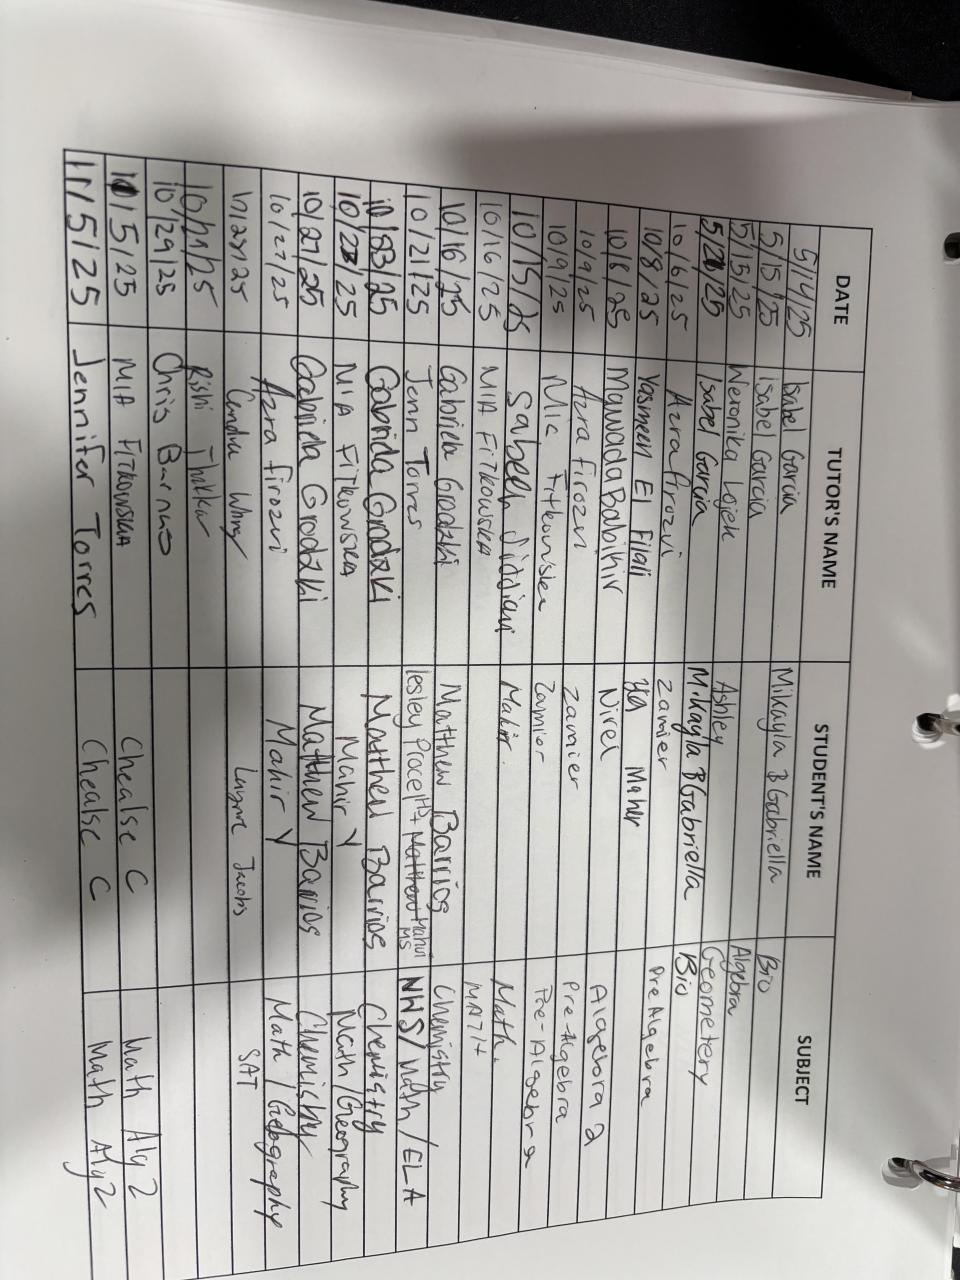 DATE TUTOR'S NAME STUDENT'S NAME SUBJECT
5/14/25 Isabel Garcia Mikayla & Gabriella Bio
5/15/25 Isabel Garcia
5/15/25 Weronika Lojek Ashley Algebra
5/20/25 Isabel Garcia Mikayla & Gabriella Geometery Bio
10/6/25 Azra Firozvi Zamier Pre Algebra
10/8/25 Yasmeen El Filali Maher
10/8/25 Mawada Babikir Nirel Algebora 2
10/9/25 Azra Firozvi Zamier Pre-Algebra
10/9/25 Mia Fitkowska Zamior Pre-Algebra
10/15/25 Sabeen Mahir. Math.
10/16/25 MIA FITKOWSKA MATH
10/16/25 Gabriela Grodzki Matthew Barrios Chemistry
10/21/25 Jenn Torres lesley Matthew Mahir MS NHS/math/ELA
10/23/25 Gabriela Grodzki Matthew Barrios Chemistry
10/23/25 MIA FITKOWSKA Mahir Y Math/Geography
10/27/25 Gabriela Grodzki Matthew Barrios Chemistry
10/27/25 Azra Firozvi Mahir Y Math/Geography
Jacobs SAT
Rishi Thakkar
10/29/25 Chris Barnas
11/5/25 MIA FITKOWSKA Chealse C Math Alg 2
11/5/25 Jennifer Torres Chealse C Math Alg 2